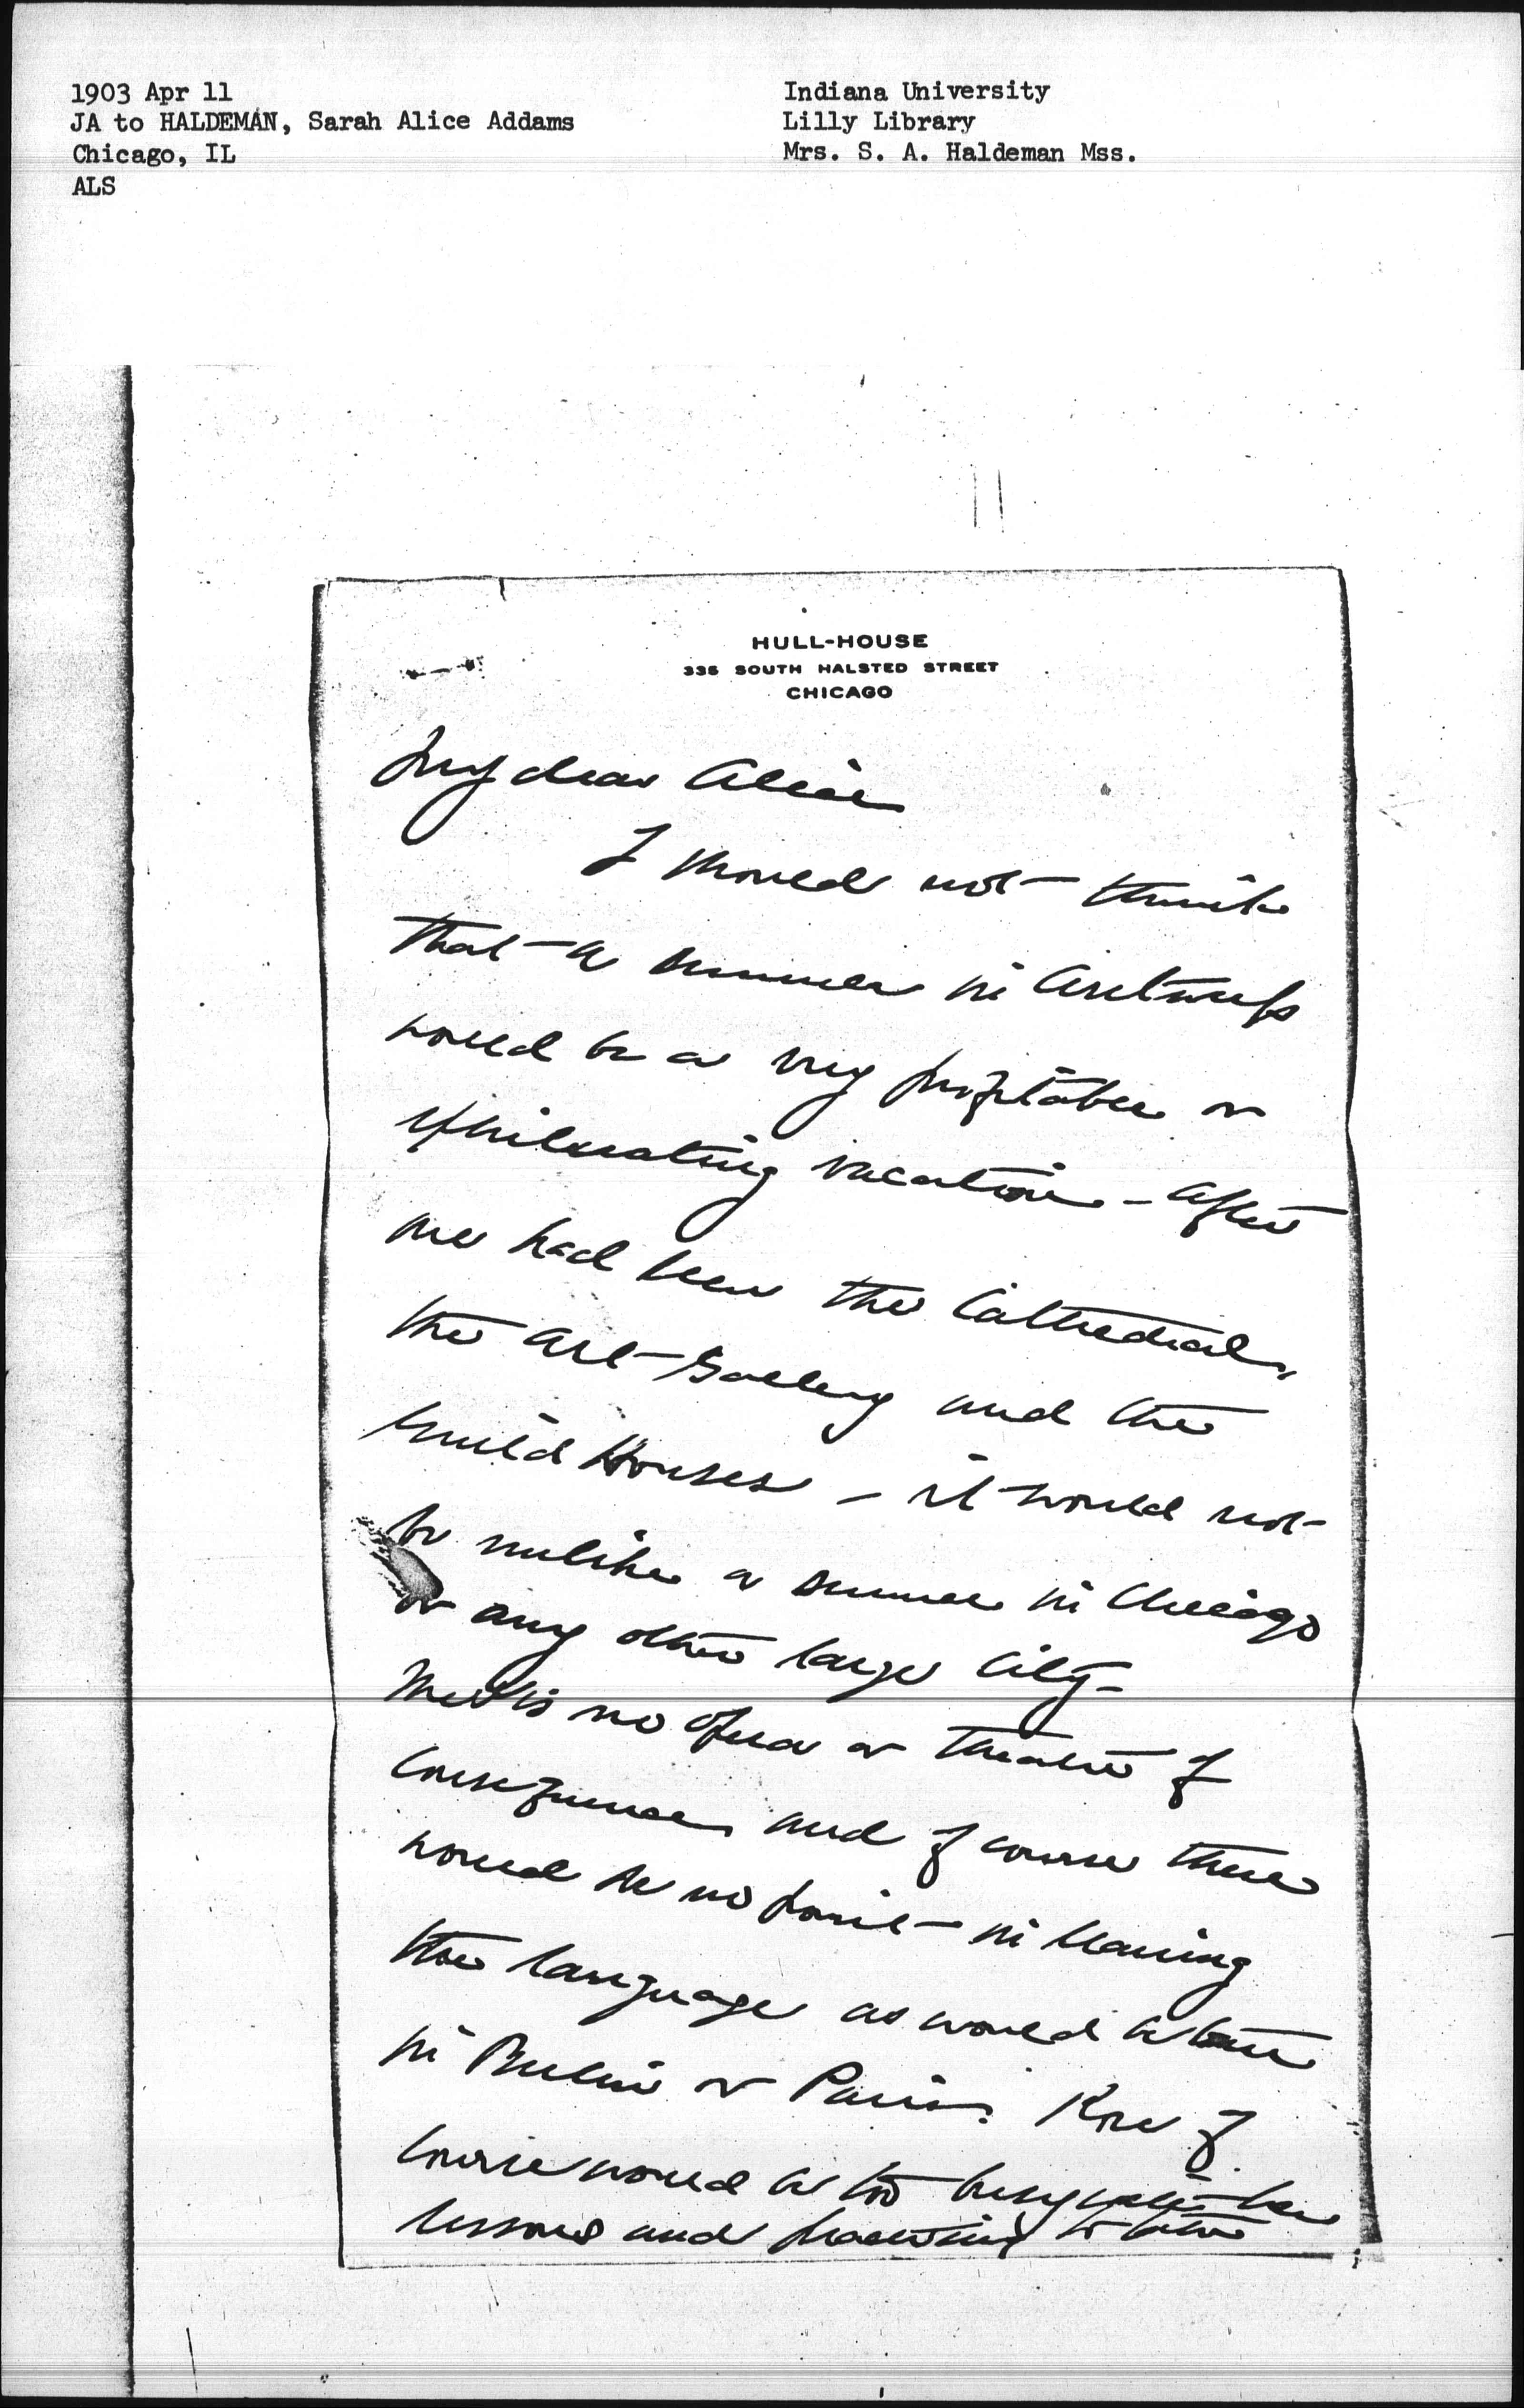 1903 Apr 11
JA to HALDEMAN, Sarah Alice Addams
Chicago, IL
ALS
Indiana University
Lilly Library
Mrs. S. A. Haldeman Mss.
HULL-HOUSE
335 SOUTH HALSTED STREET
CHICAGO
My dear Alice
I should not think
that a summer in Antwerp
would be a very profitable or
exhilerating vacation - after
one had seen the Cathedral,
the Art Gallery and the
Guild Houses - it would not
be unlike a summer in Chicago
or any other large city -
There is no opera or theatre of
consequence, and of course there
would be no point in learning
the language as would be true
in Berlin or Paris. You of
course would be too busy with
lessons and practising to